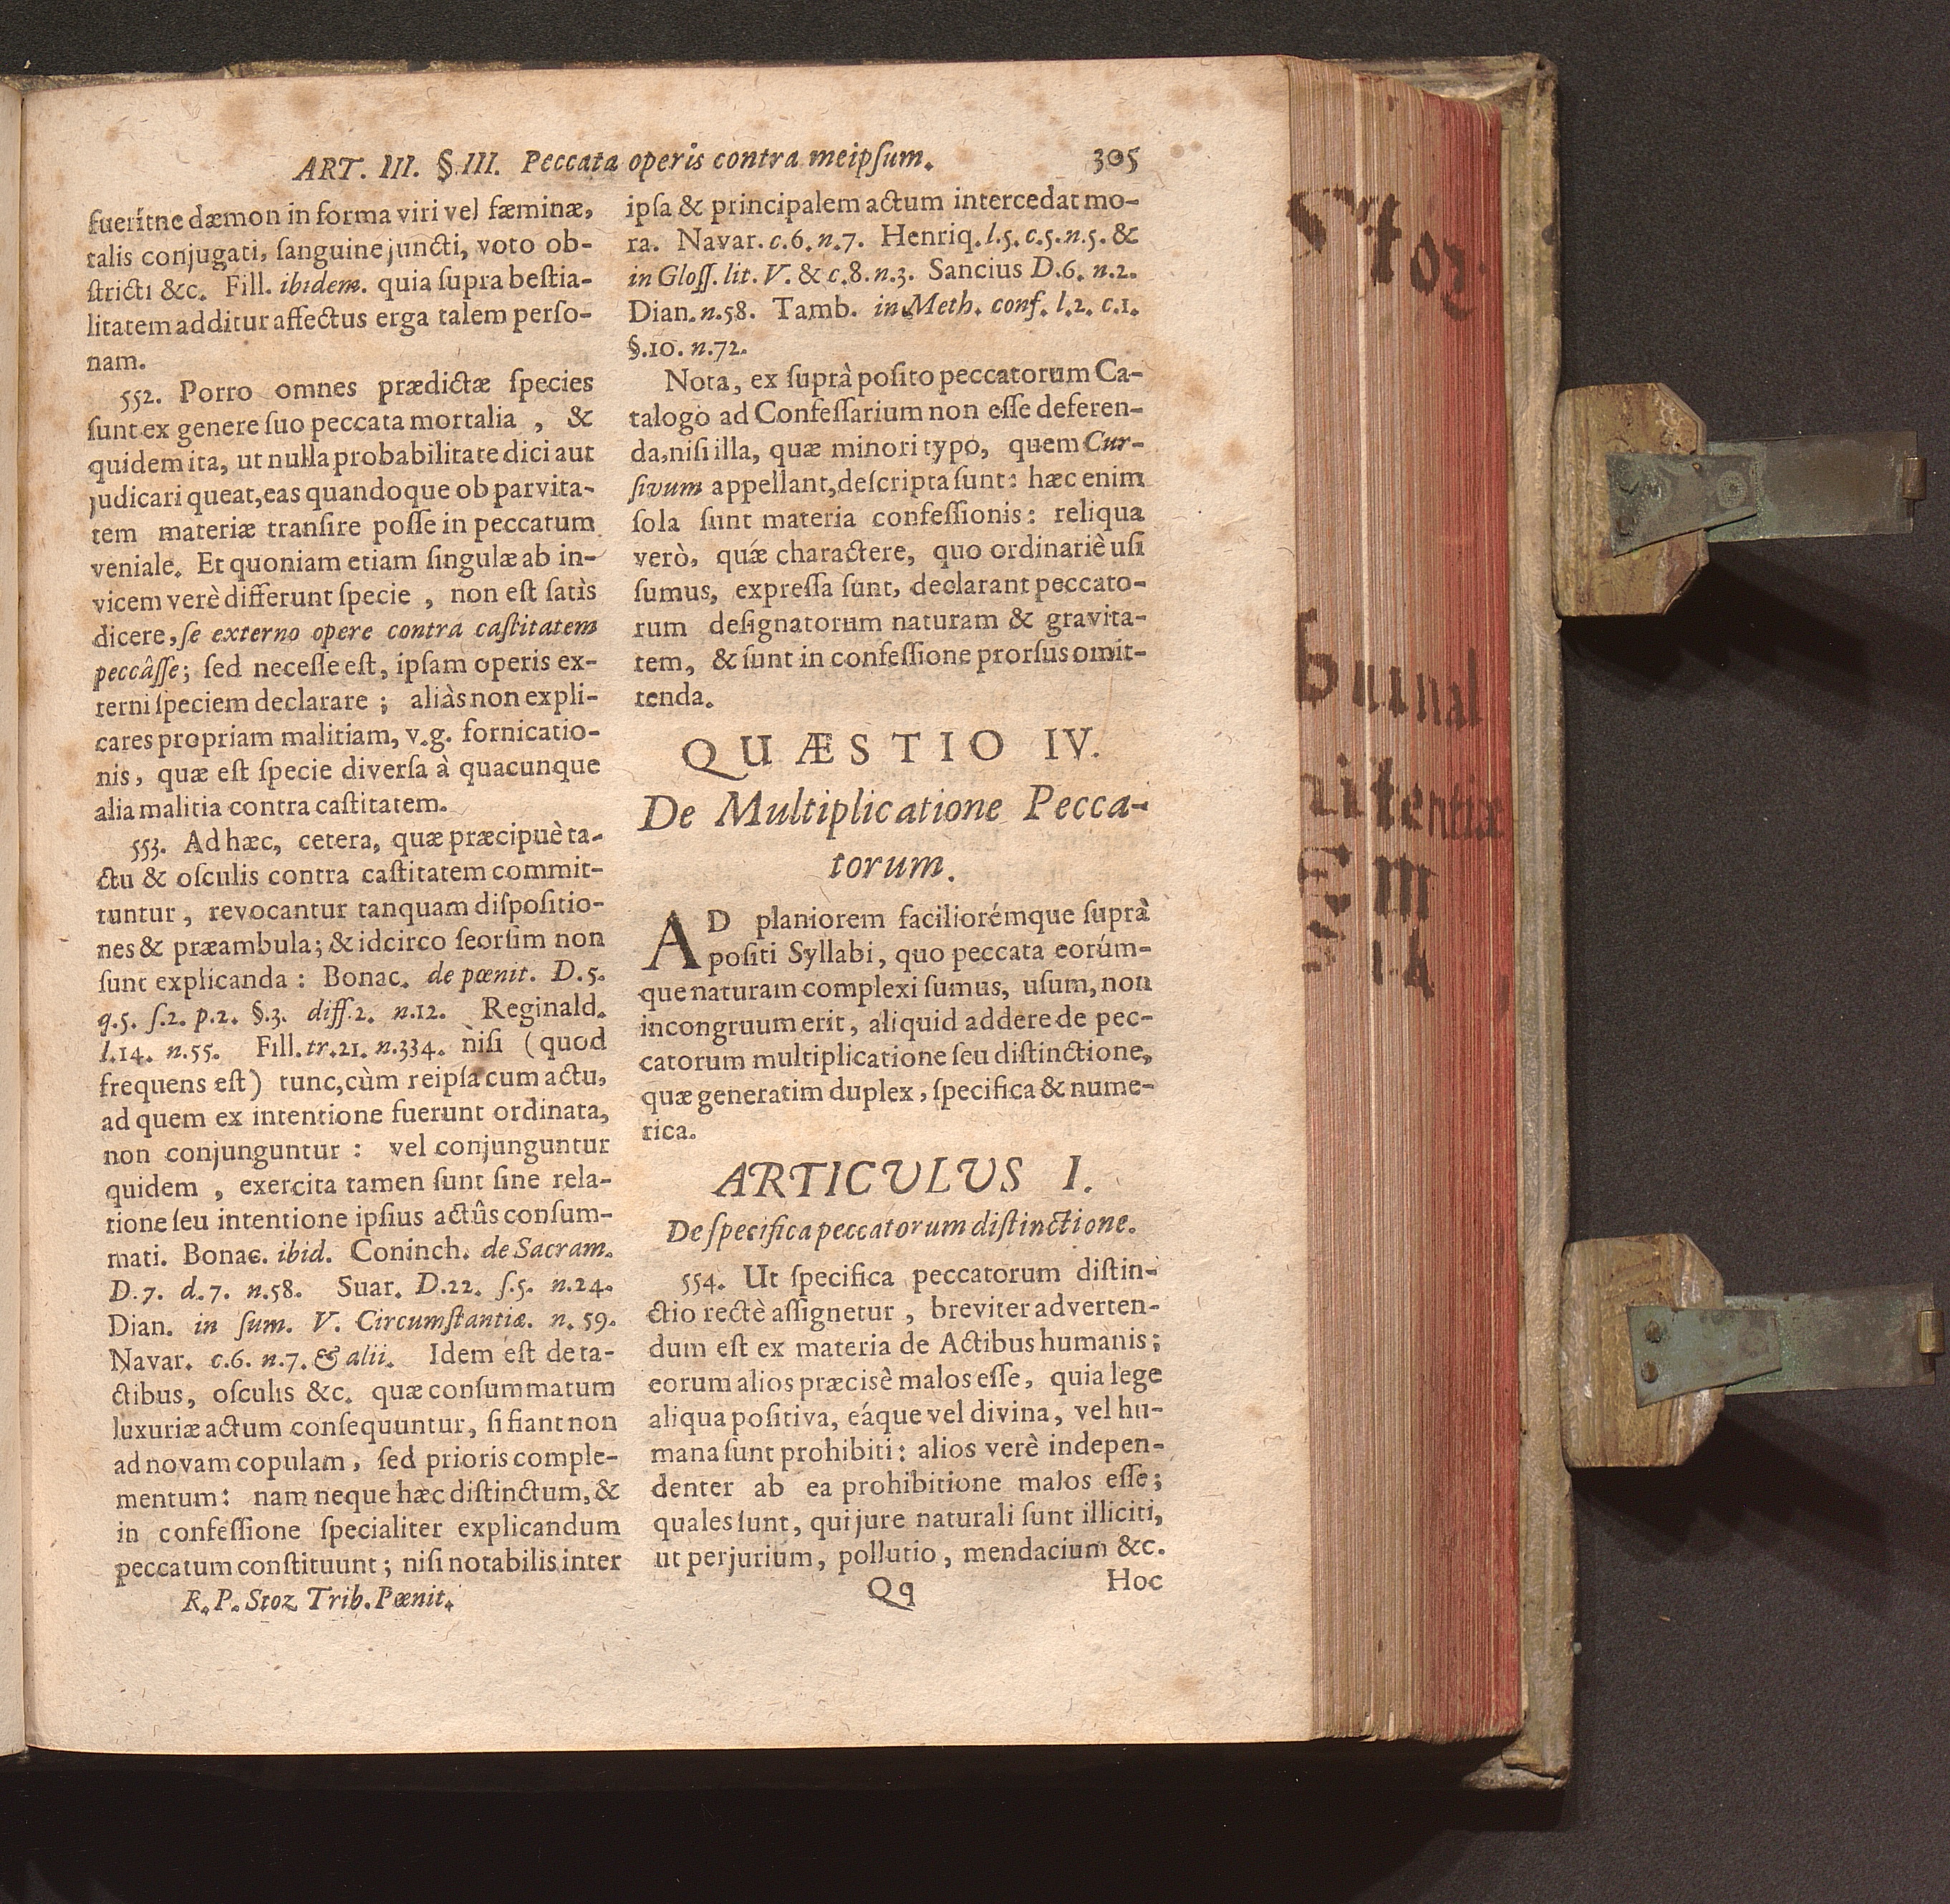 ART. III. §. III. Peccata operis contra meipſum. 305
fueritne dæmon in forma viri vel fæminæ,
talis conjugati, ſanguine juncti, voto ob-
ſtricti &c. Fill. ibidem. quia ſupra beſtia-
litatem additur affectus erga talem perſo-
nam.
552. Porro omnes prædictæ ſpecies
ſunt ex genere ſuo peccata mortalia, &
quidem ita, ut nulla probabilitate dici aut
judicari queat, eas quandoque ob parvita-
tem materiæ tranſire poſſe in peccatum
veniale. Et quoniam etiam ſingulæ ab in-
vicem verè differunt ſpecie, non eſt ſatìs
dicere, ſe externo opere contra caſtitatem
peccâſſe; ſed neceſſe eſt, ipſam operis ex-
terni ſpeciem declarare; aliàs non expli-
cares propriam malitiam, v.g. fornicatio-
nis, quæ eſt ſpecie diverſa à quacunque
alia malitia contra caſtitatem.
553. Ad hæc, cetera, quæ præcipuè ta-
ctu & oſculis contra caſtitatem commit-
tuntur, revocantur tanquam diſpoſitio-
nes & præambula; & idcirco ſeorſim non
ſunt explicanda: Bonac. de pœnit. D.5.
q.5. ſ.2. p.2. §.3. diff.2. n.12. Reginald.
l.14. n.55. Fill. tr.21. n.334. niſi (quod
frequens eſt) tunc, cùm reipſa cum actu,
ad quem ex intentione fuerunt ordinata,
non conjunguntur: vel conjunguntur
quidem, exercita tamen ſunt ſine rela-
tione ſeu intentione ipſius actûs conſum-
mati. Bonac. ibid. Coninch. de Sacram.
D.7. d.7. n.58. Suar. D.22. ſ.5. n.24.
Dian. in ſum. V. Circumſtantiæ. n.59.
Navar. c.6. n.7. & alii. Idem eſt de ta-
ctibus, oſculis &c. quæ conſummatum
luxuriæ actum conſequuntur, ſi fiant non
ad novam copulam, ſed prioris comple-
mentum: nam neque hæc diſtinctum, &
in confeſſione ſpecialiter explicandum
peccatum conſtituunt; niſi notabilis inter
R. P. Stoz Trib. Pœnit.
ipſa & principalem actum intercedat mo-
ra. Navar. c.6. n.7. Henriq. l.5. c.5. n.5. &
in Gloſſ. lit. V. & c.8. n.3. Sancius D.6. n.2.
Dian. n.58. Tamb. in Meth. conf. l.2. c.1.
§.10. n.72.
Nota, ex ſuprà poſito peccatorum Ca-
talogo ad Confeſſarium non eſſe deferen-
da, niſi illa, quæ minori typo, quem Cur-
ſivum appellant, deſcripta ſunt: hæc enim
ſola ſunt materia confeſſionis: reliqua
verò, quæ charactere, quo ordinariè uſi
ſumus, expreſſa ſunt, declarant peccato-
rum deſignatorum naturam & gravita-
tem, & ſunt in confeſſione prorſus omit-
tenda.
QUÆSTIO IV.
De Multiplicatione Pecca-
torum.
AD planiorem faciliorémque ſuprà
poſiti Syllabi, quo peccata eorúm-
que naturam complexi ſumus, uſum, non
incongruum erit, aliquid addere de pec-
catorum multiplicatione ſeu diſtinctione,
quæ generatim duplex, ſpecifica & nume-
rica.
ARTICULUS I.
De ſpecifica peccatorum diſtinctione.
554. Ut ſpecifica peccatorum diſtin-
ctio rectè aſſignetur, breviter adverten-
dum eſt ex materia de Actibus humanis;
eorum alios præcisè malos eſſe, quia lege
aliqua poſitiva, eáque vel divina, vel hu-
mana ſunt prohibiti: alios verè indepen-
denter ab ea prohibitione malos eſſe;
quales ſunt, qui jure naturali ſunt illiciti,
ut perjurium, pollutio, mendacium &c.
Qq Hoc
Stoz